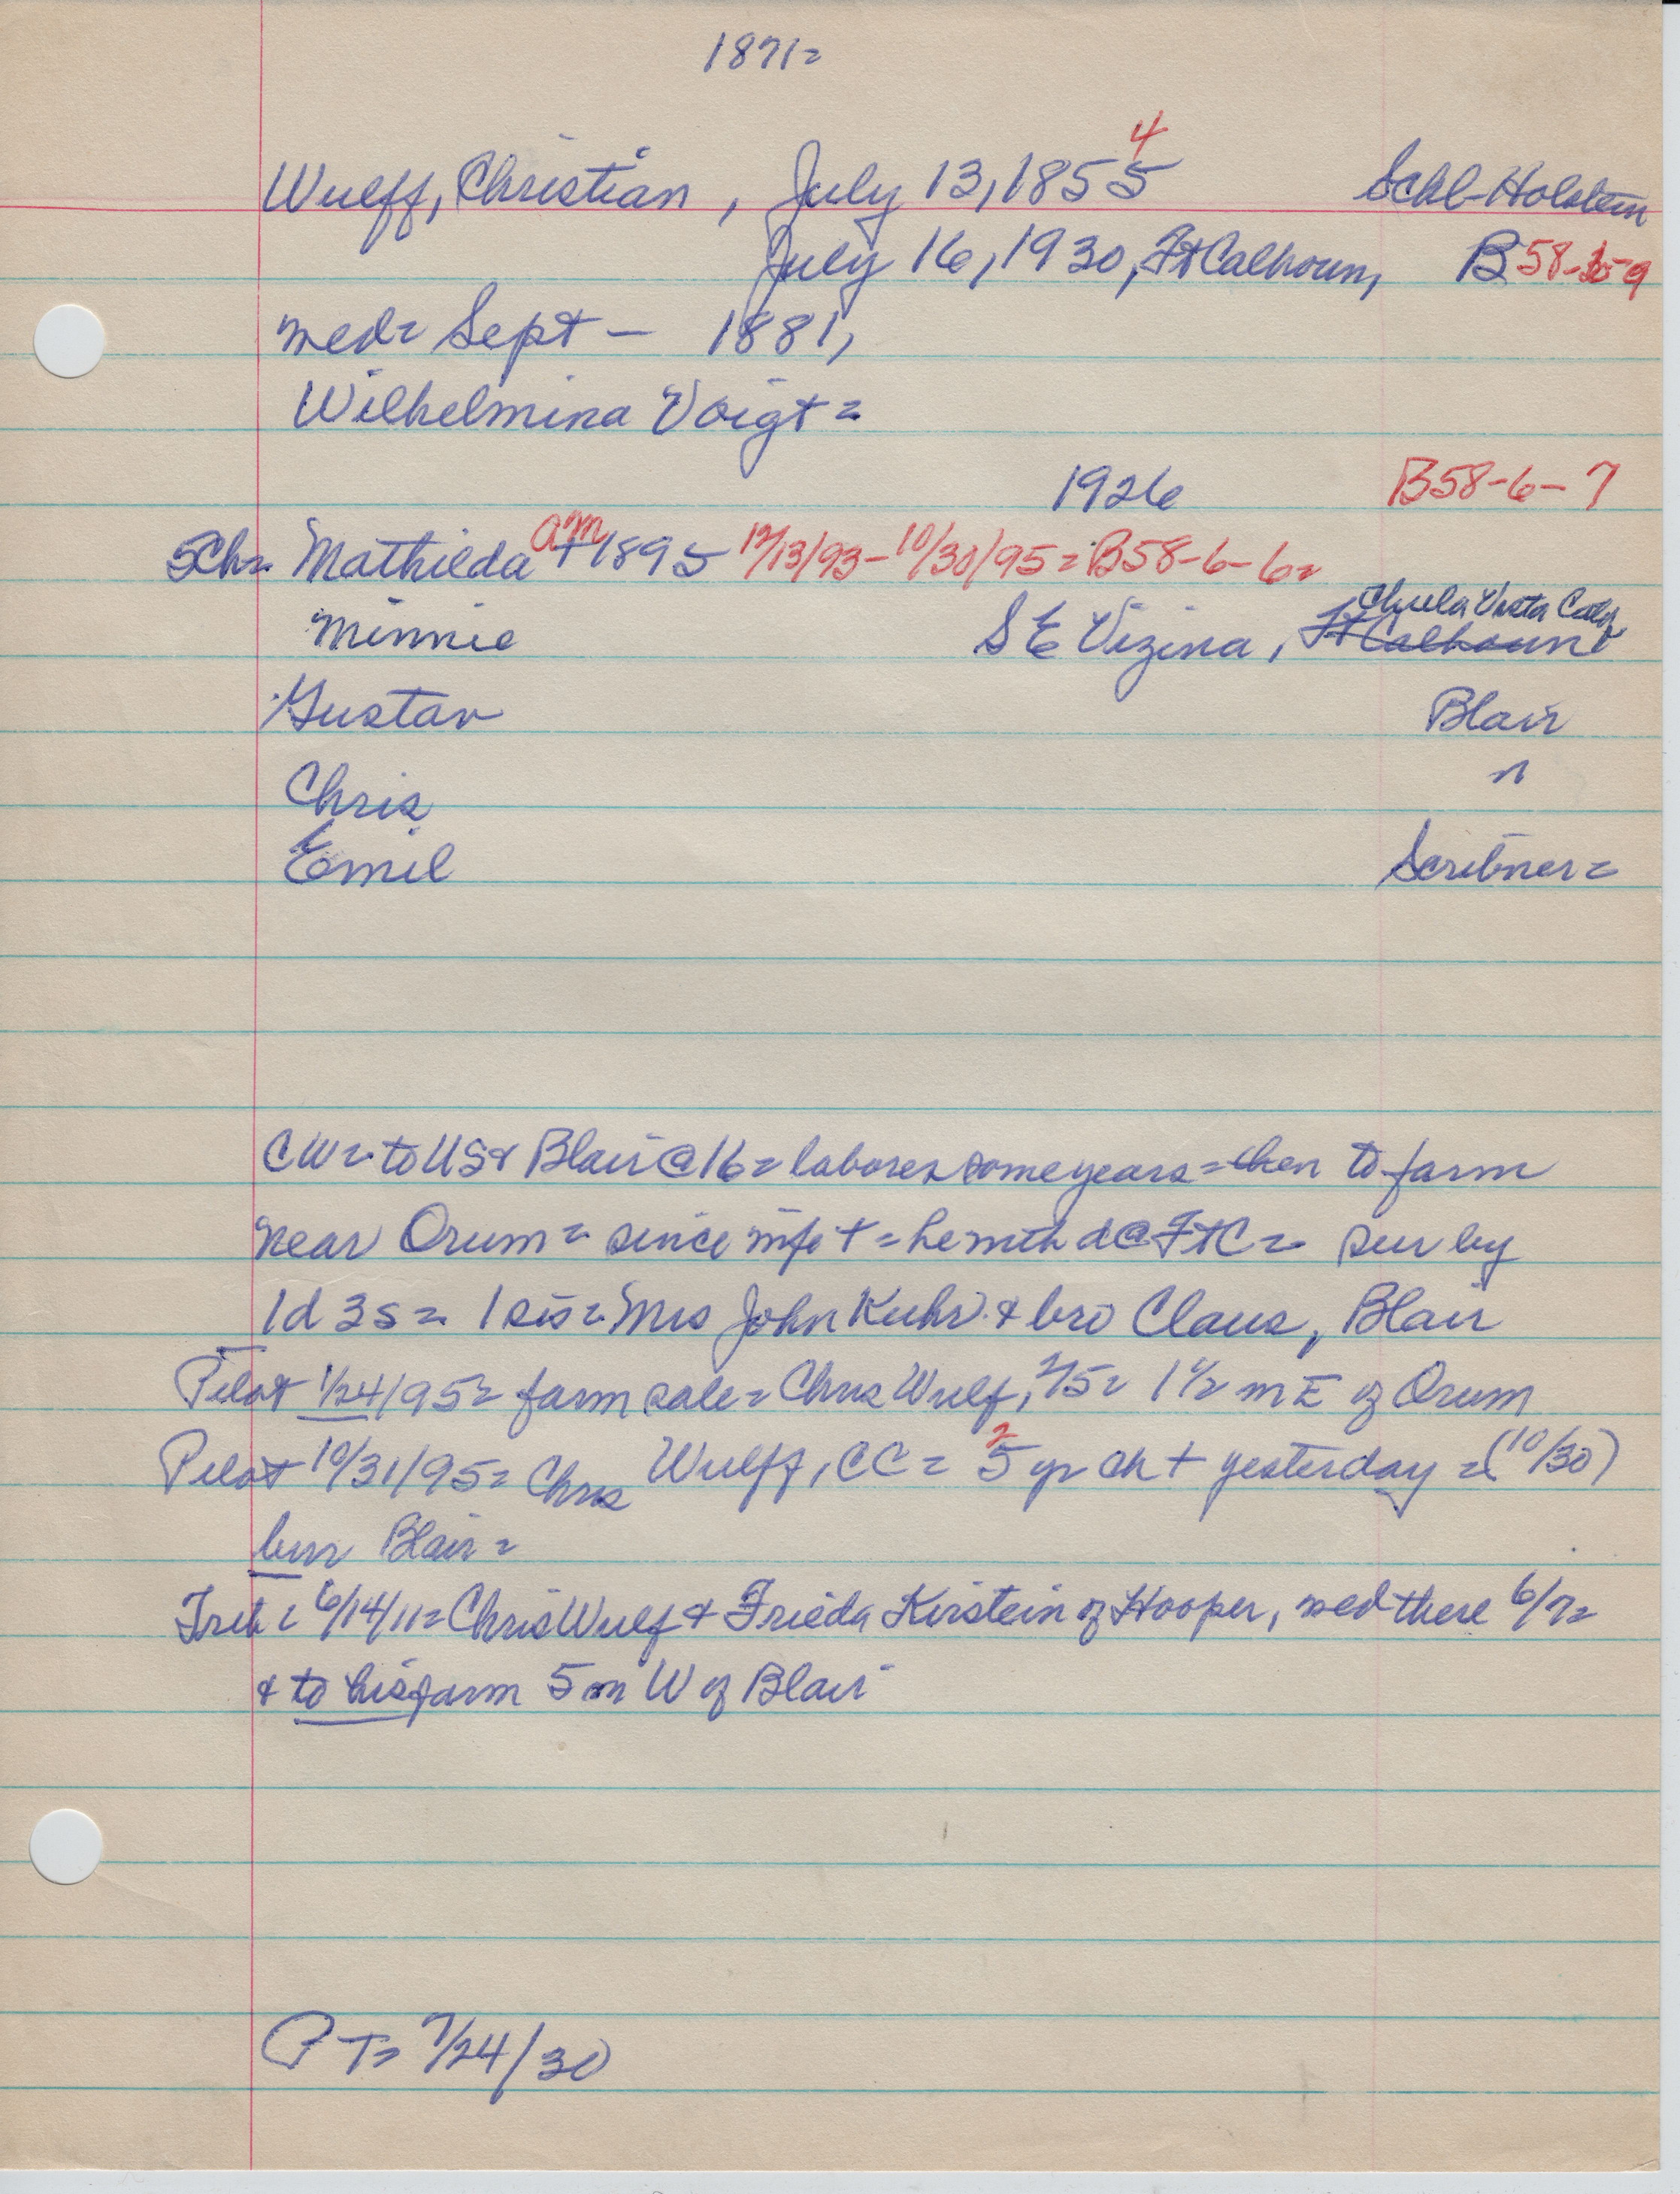 1871=
4
Wulff, Christian, July 13, 1855 Schl-Holstein
July 16, 1930, Ft Calhoun, B 58-6-9
med= Sept - 1881,
Wilhelmina Voigt=
1926 B58-6-7
5Ch= Mathilda AM + 1895 12/13/93-10/30/95= B58-6-6=
Chula Vista Calif
Minnie S E Vizina, Ft Calhoun
Gustav Blair
Chris "
Emil Scribner=
CW= to US & Blair @ 16= laborer some years= then to farm
near Orum= since wife += he with d @ Ft C= sur by
1d 3s= 1 sis= Mrs John Kuhr & bro Claus, Blair
Pilot 1/24/95= farm sale= Chris Wulf, 2/5= 1 1/2 m E of Orum
Pilot 10/31/95= Chris Wulff, CC= 5 2 yr ch + yesterday = (10/30)
bur Blair=
Trib= 6/14/11= Chris Wulf & Frieda Kirstein of Hooper, med there 6/7=
& to his farm 5 m W of Blair
PT= 7/24/30